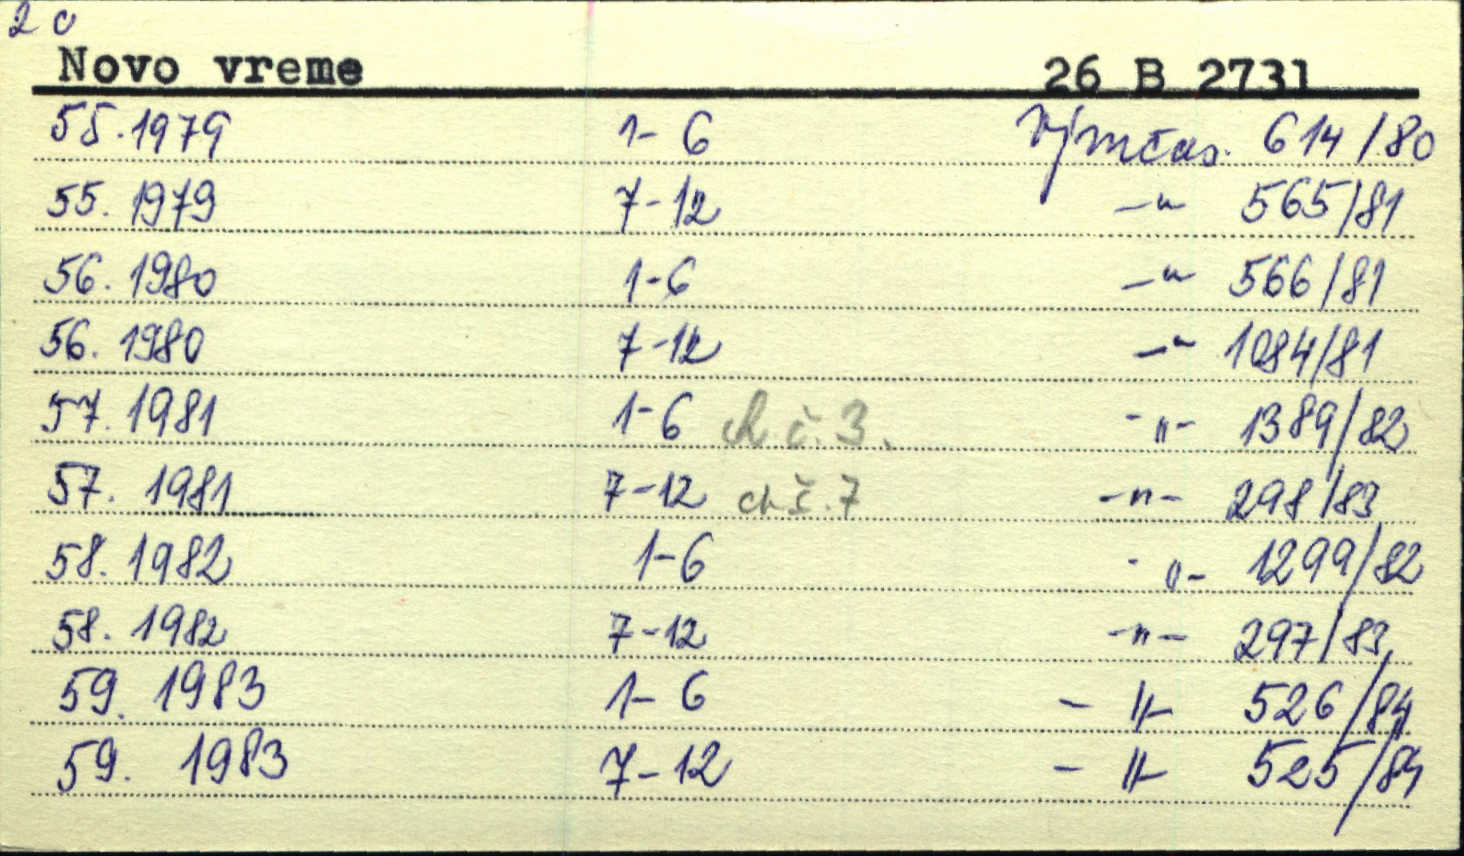 2 c
Novo vreme 26 B 2731
55. 1979 1-6 Vým čas. 614/80
55. 1979 7-12 -"- 565/81
56. 1980 1-6 -"- 566/81
56. 1980 7-12 -"- 1084/81
57. 1981 1-6 ch č. 3. -"- 1389/82
57. 1981 7-12 ch č. 7 -"- 298/83
58. 1982 1-6 -"- 1299/82
58. 1982 7-12 -"- 297/83
59. 1983 1-6 -"- 526/84
59. 1983 7-12 -"- 525/84